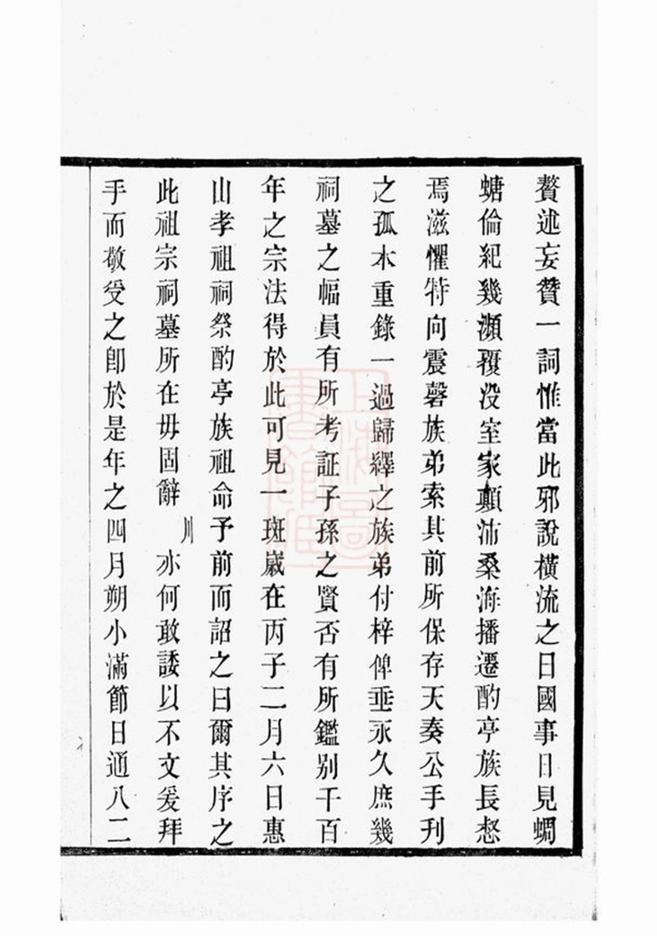 贅述妄贊一詞惟當此邪說橫流之日國事日見蜩
螗倫紀幾瀕覆没室家顛沛桑海播遷酌亭族長惄
焉滋懼特向震磬族弟索其前所保存天奏公手刊
之孤本重錄一過歸繹之族弟付梓俾垂永久庶幾
祠墓之幅員有所考証子孫之賢否有所鑑别千百
年之宗法得於此可見一斑歲在丙子二月六日惠
山孝祖祠祭酌亭族祖命予前而詔之曰爾其序之
此祖宗祠墓所在毋固辭川亦何敢諉以不文爰拜
手而敬受之即於是年之四月朔小滿節日通八二
上海圖書館藏